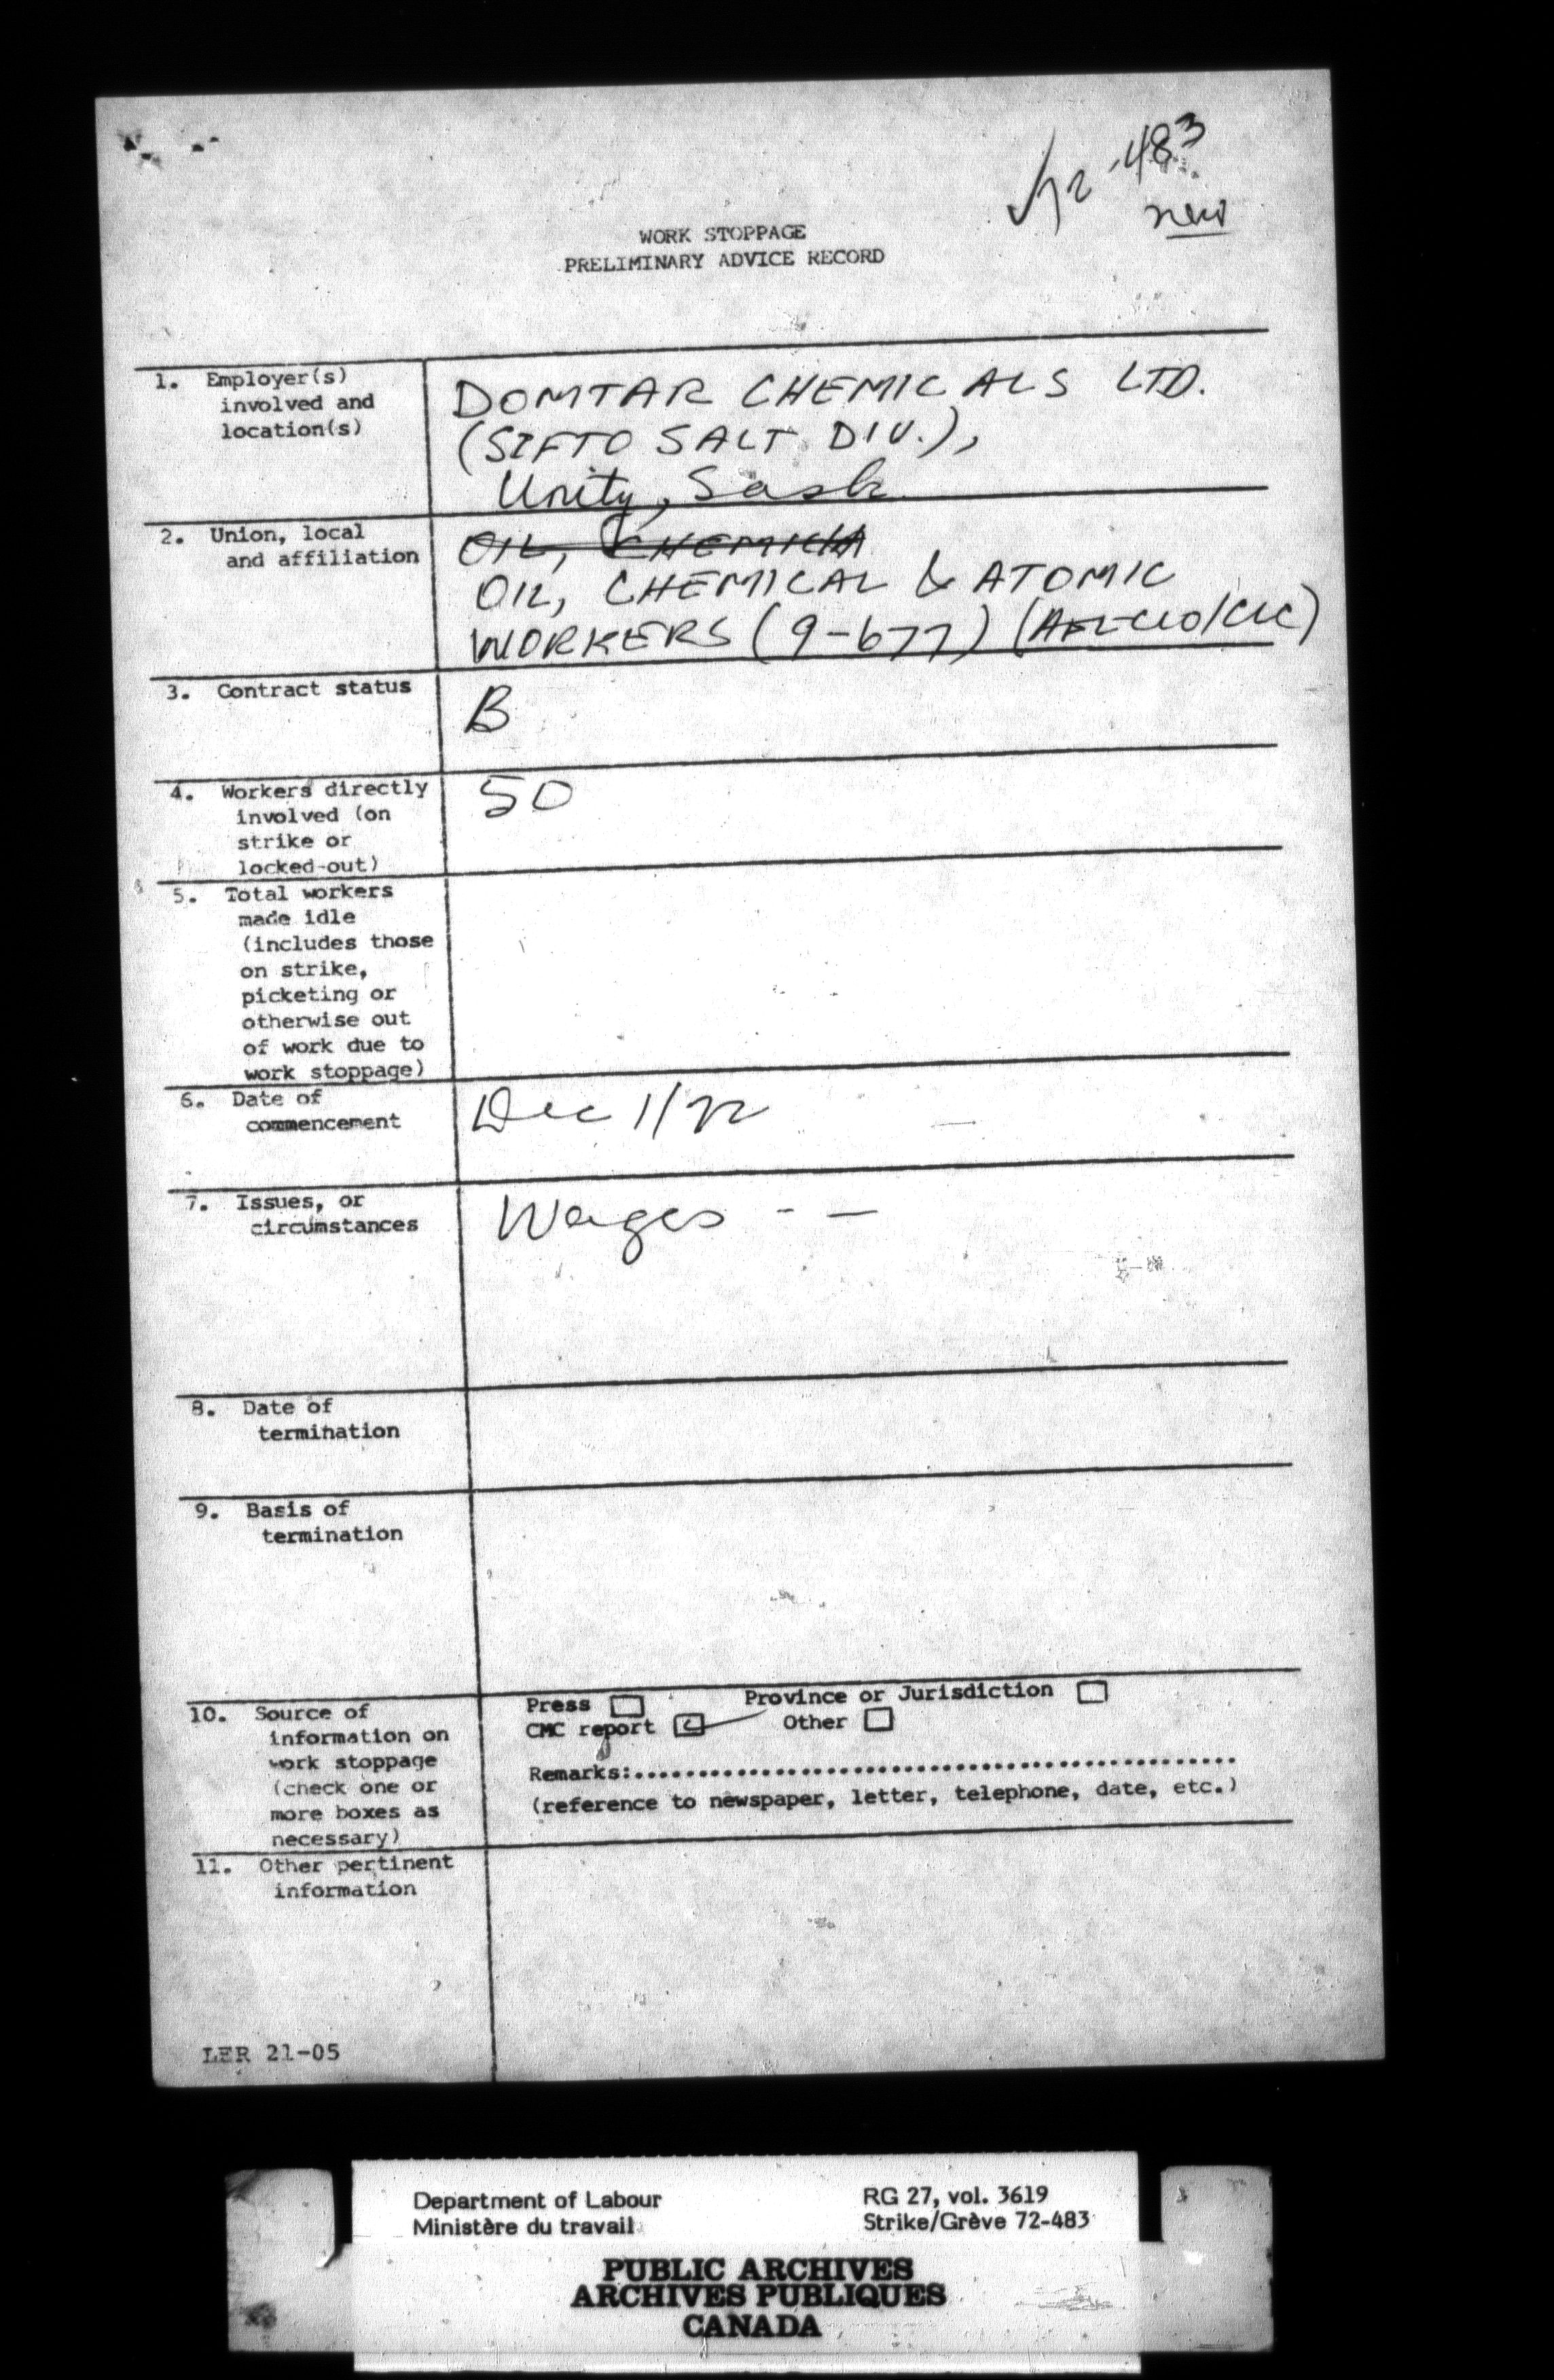 ✓72-483
new
WORK STOPPAGE
PRELIMINARY ADVICE RECORD
1. Employer(s)
involved and
location(s)
DOMTAR CHEMICALS LTD.
(SIFTO SALT DIV.),
Unity, Sask.
2. Union, local
and affiliation
OIL, CHEMICA
OIL, CHEMICAL & ATOMIC
WORKERS (9-677) (AFL-CIO/CLC)
3. Contract status
B
4. Workers directly
involved (on
strike or
locked-out)
50
5. Total workers
made idle
(includes those
on strike,
picketing or
otherwise out
of work due to
work stoppage)
6. Date of
commencement
Dec 1/72
7. Issues, or
circumstances
Wages - -
8. Date of
termination
9. Basis of
termination
10. Source of
information on
work stoppage
(check one or
more boxes as
necessary)
Press Province or Jurisdiction
CMC report Other
Remarks:
(reference to newspaper, letter, telephone, date, etc.)
11. Other pertinent
information
LER 21-05
Department of Labour
Ministère du travail
RG 27, vol. 3619
Strike/Grève 72-483
PUBLIC ARCHIVES
ARCHIVES PUBLIQUES
CANADA